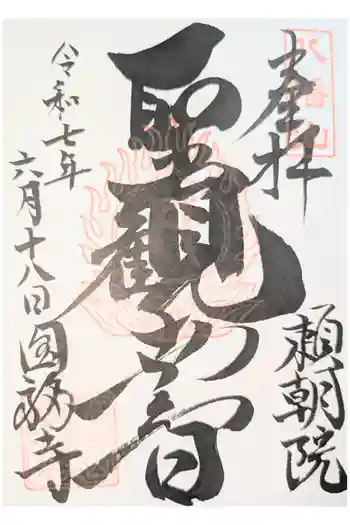 奉拝
頼朝院
聖観世音
令和七年
六月十八日
国分寺